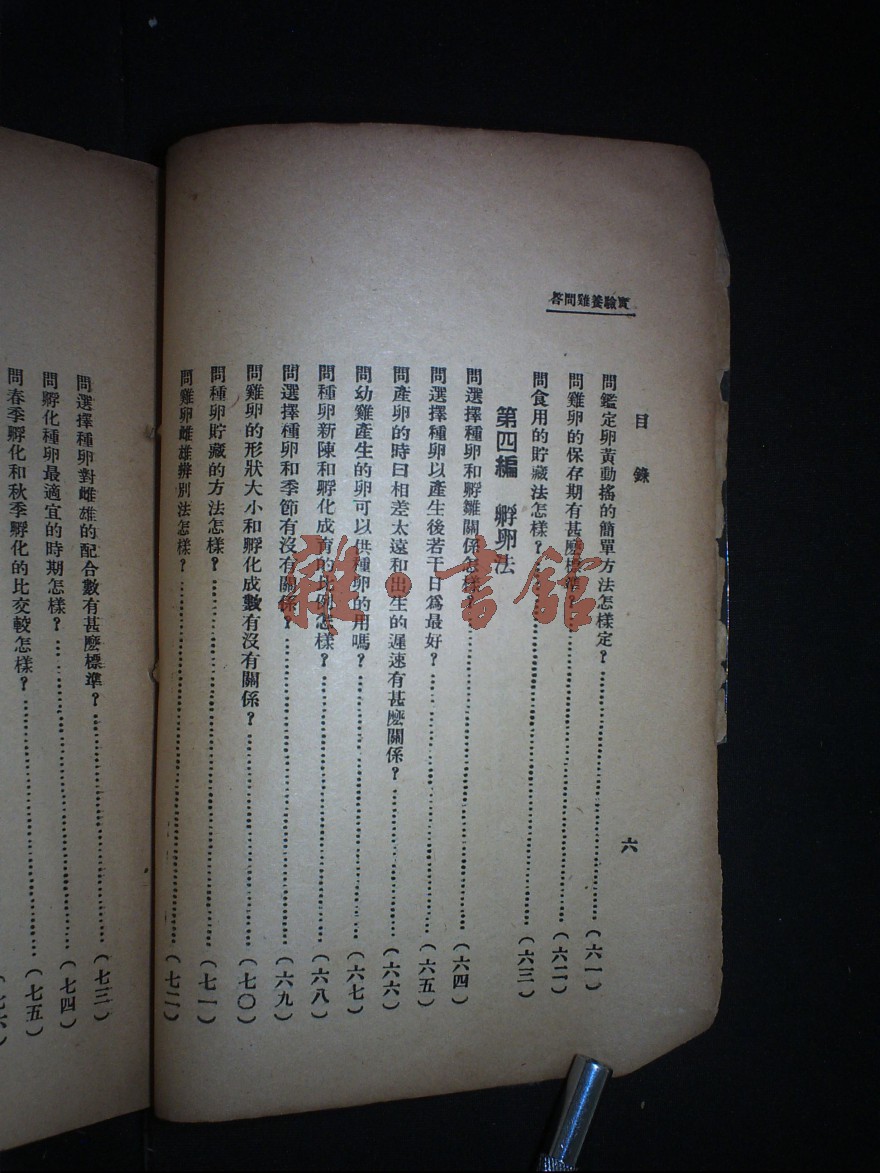 實驗養雞問答
目錄
六
問鑑定卵黃動搖的簡單方法怎樣定?(六一)
問雞卵的保存期有甚麼標準?(六二)
問食用的貯藏法怎樣?(六三)
第四編 孵卵法
問選擇種卵和孵雛關係怎樣?(六四)
問選擇種卵以產生後若干日爲最好?(六五)
問產卵的時日相差太遠和出生的遲速有甚麼關係?(六六)
問幼雞產生的卵可以供種卵的用嗎?(六七)
問種卵新陳和孵化成育的比例怎樣?(六八)
問選擇種卵和季節有沒有關係?(六九)
問雞卵的形狀大小和孵化成數有沒有關係?(七〇)
問種卵貯藏的方法怎樣?(七一)
問雞卵雌雄辨別法怎樣?(七二)
問選擇種卵對雌雄的配合數有甚麼標準?(七三)
問孵化種卵最適宜的時期怎樣?(七四)
問春季孵化和秋季孵化的比交較怎樣?(七五)
(七六)
雜·書館